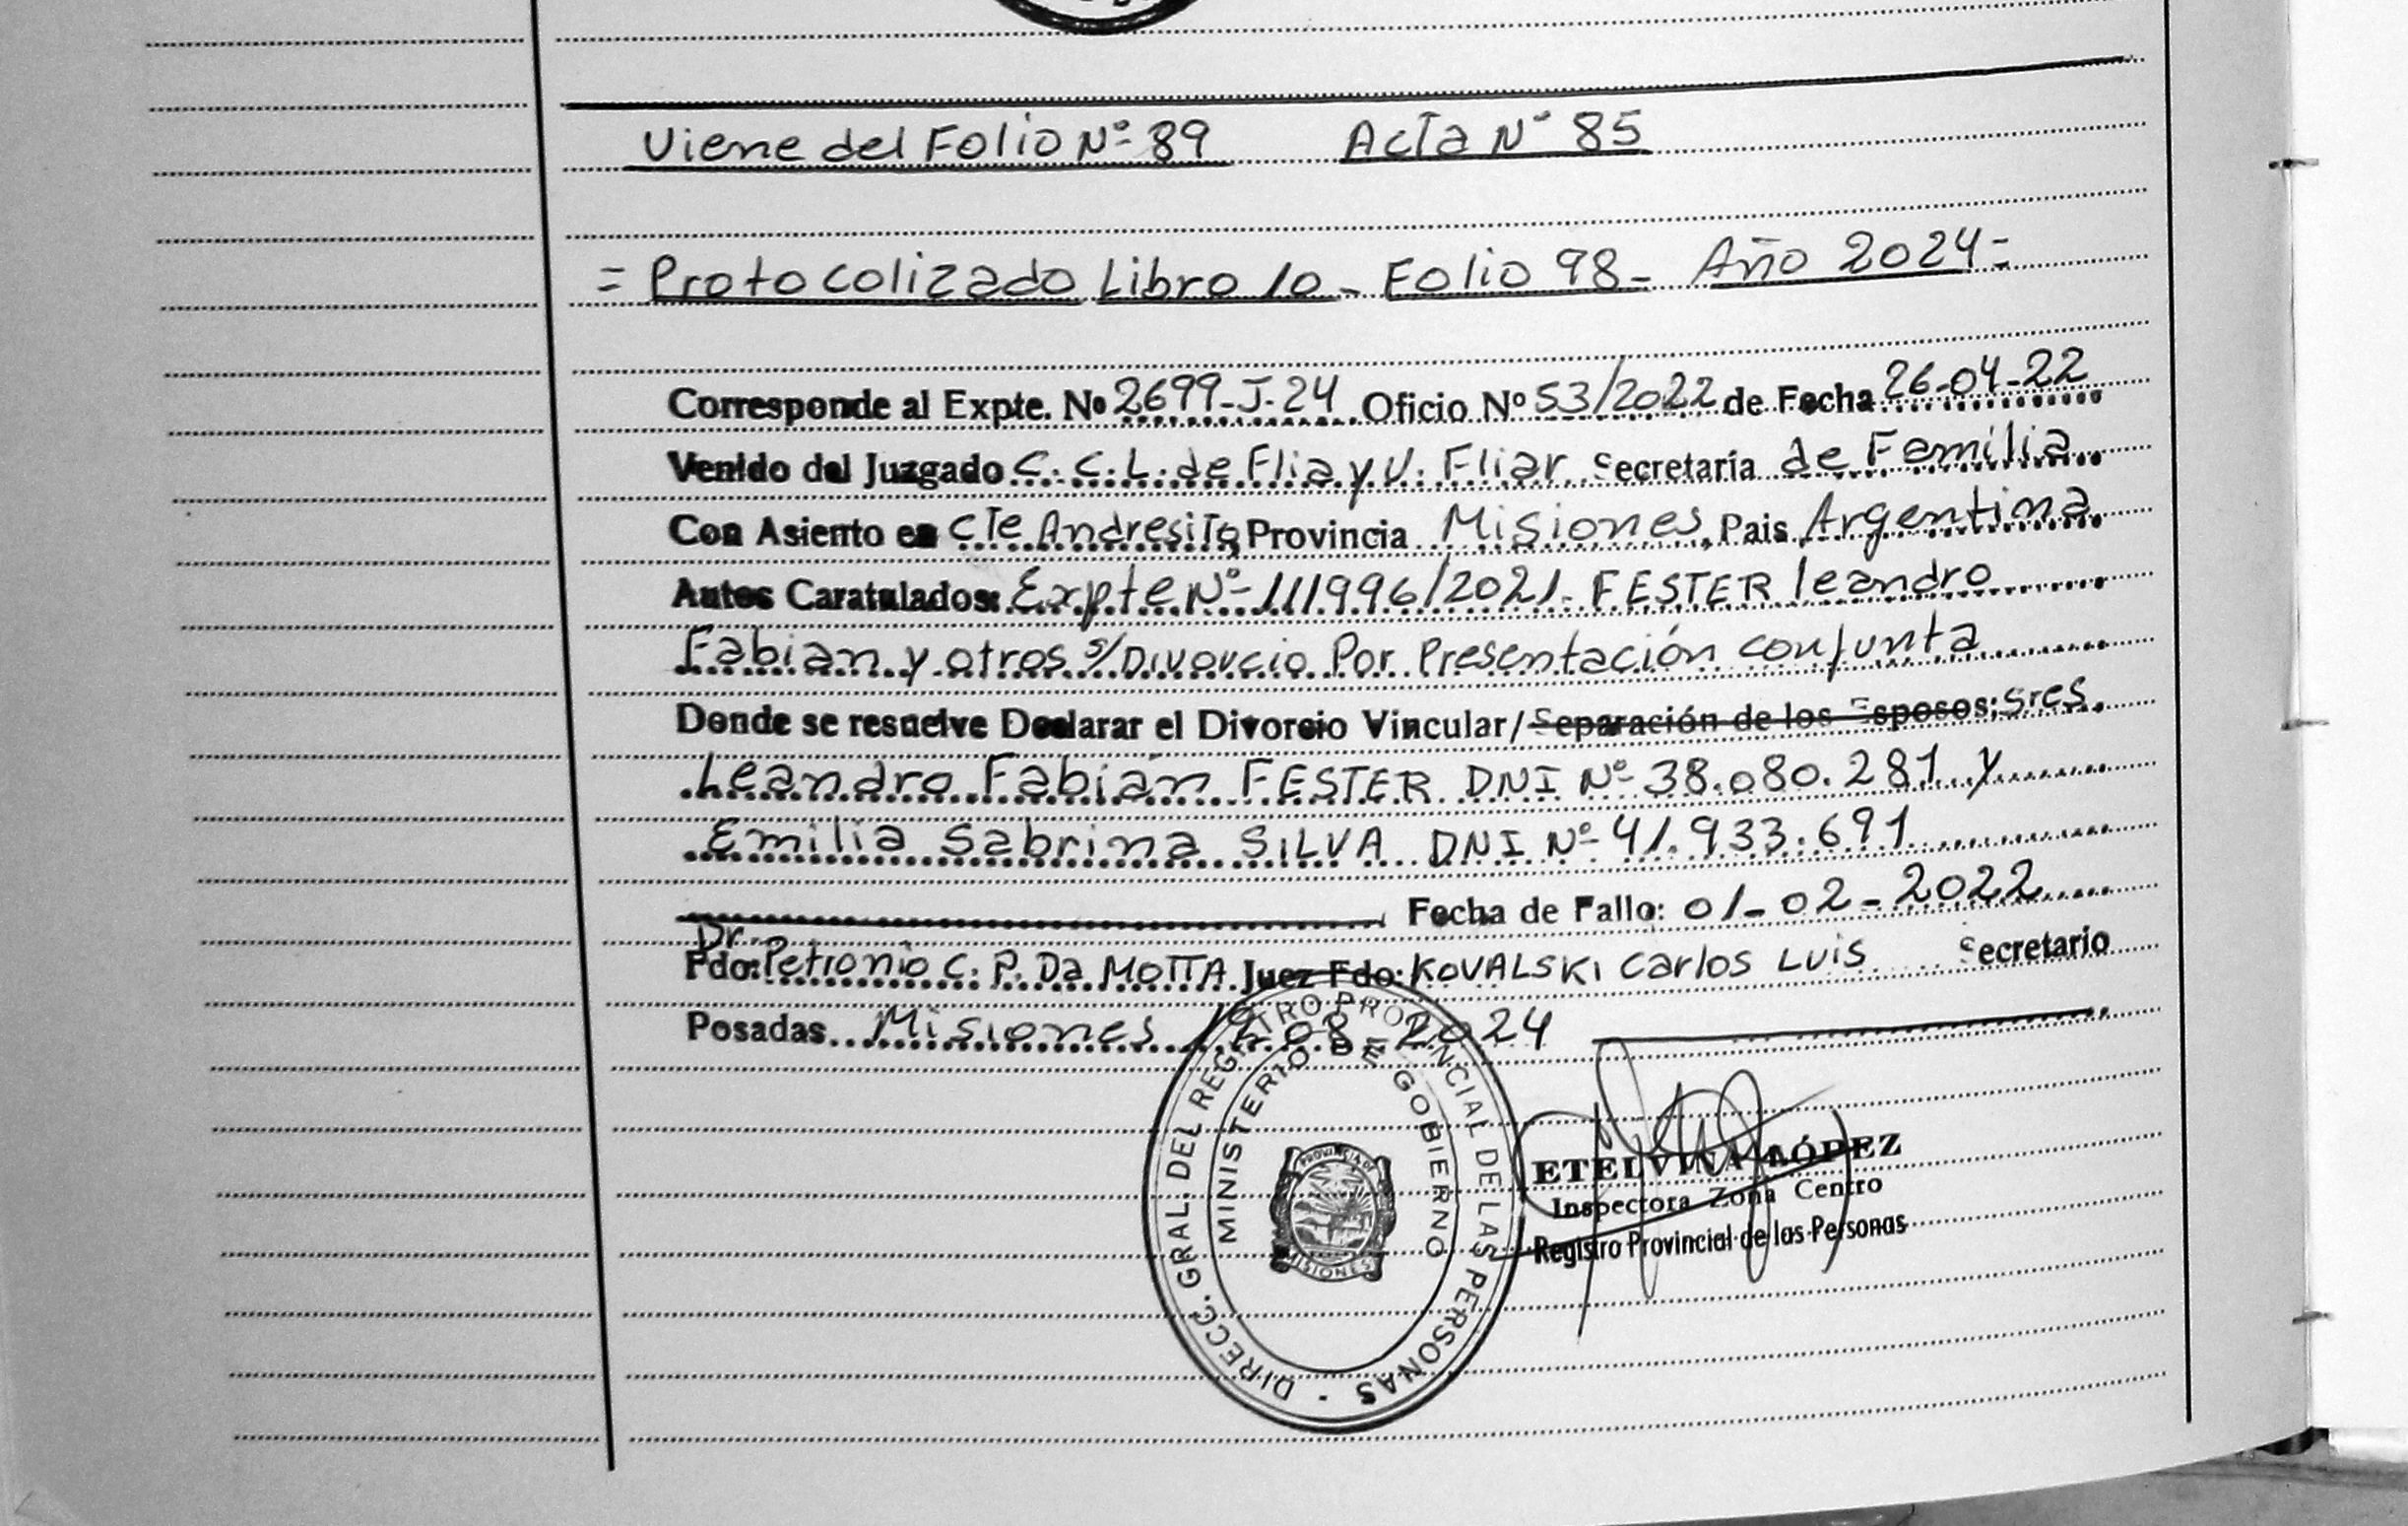 Viene del Folio Nº 89 Acta Nº 85
= Protocolizado Libro 10 - Folio 98 - Año 2024 =
Corresponde al Expte. Nº 2699-J-24 Oficio Nº 53/2022 de Fecha 26-04-22
Venido del Juzgado C. C. L. de Flia y V. Fliar Secretaría de Familia
Con Asiento en Cte Andresito, Provincia Misiones, Pais Argentina
Autos Caratulados: Expte Nº 111996/2021 - FESTER leandro
Fabian y otros s/Divorcio Por Presentación conjunta
Donde se resuelve Declarar el Divorcio Vincular/Separación de los Esposos: Sres.
Leandro Fabian FESTER DNI Nº 38.080.281 y
Emilia Sabrina SILVA DNI Nº 41.933.691
Fecha de Fallo: 01-02-2022
Dr.
Fdo: Petronio C. P. Da MOTTA Juez Fdo: KOVALSKI Carlos Luis Secretario
Posadas Misiones 08 2024
DIRECC. GRAL. DEL REGISTRO PROVINCIAL DE LAS PERSONAS -
MINISTERIO DE GOBIERNO
PROVINCIA DE
MISIONES
ETELVINA LÓPEZ
Inspectora Zona Centro
Registro Provincial de las Personas